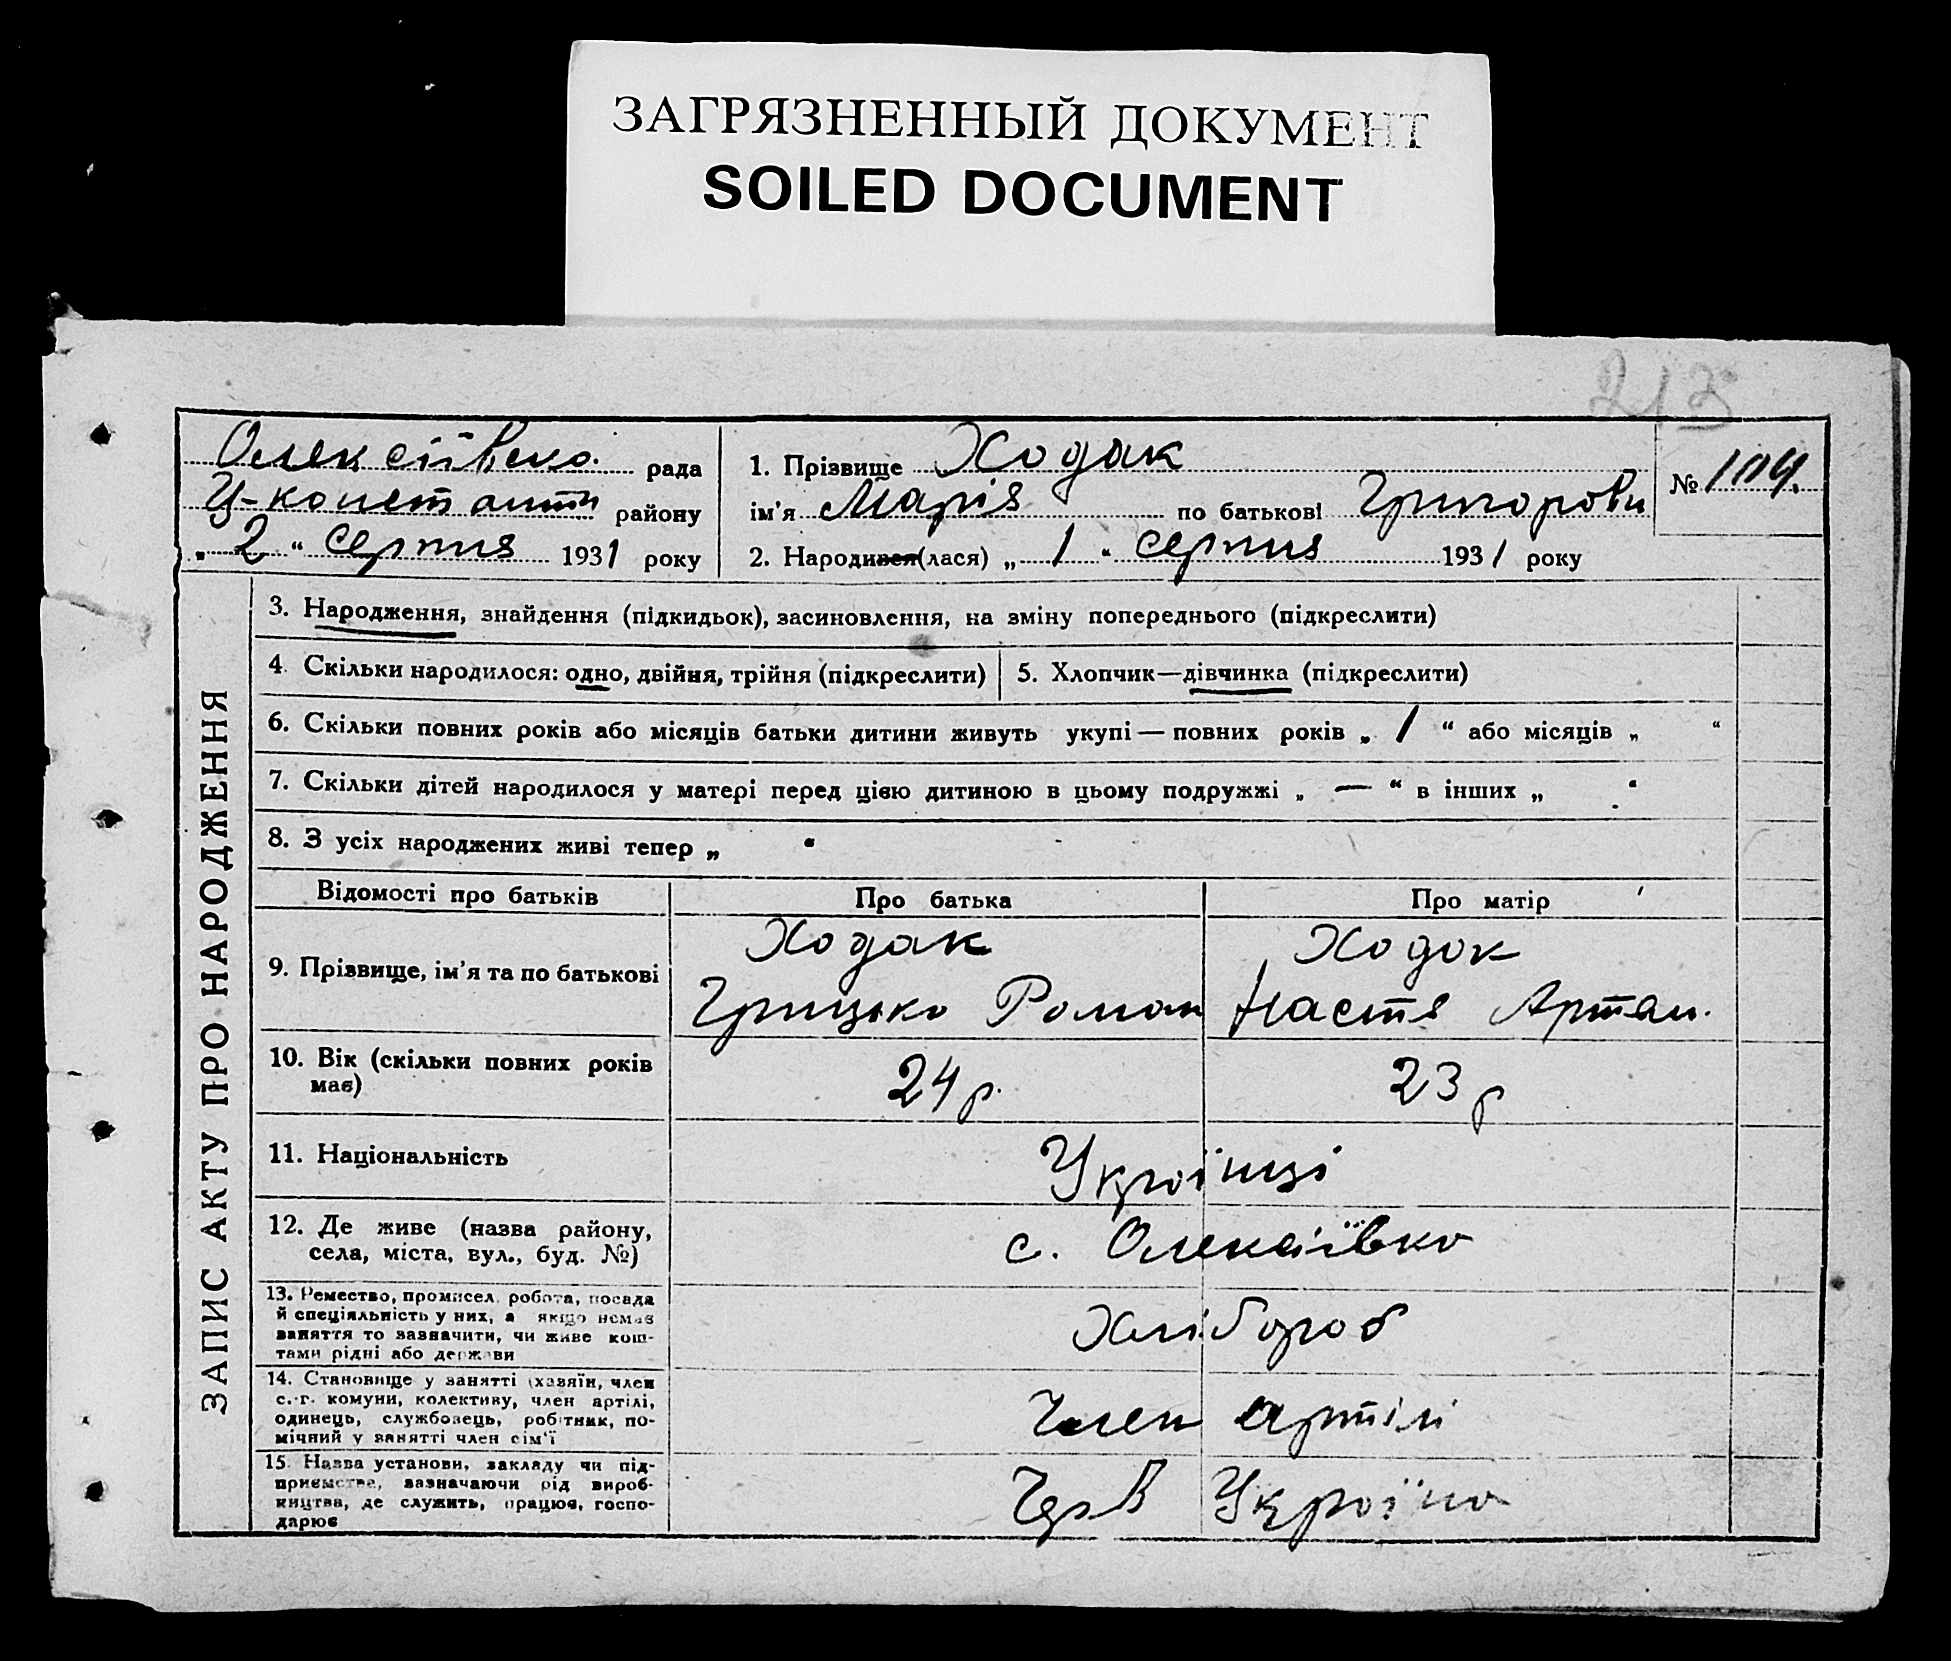 ЗАГРЯЗНЕННЫЙ ДОКУМЕНТ
SOILED DOCUMENT
213
Олексіївсько. рада
Ц-констант районну
„ 2 “ серпня 1931 року
1. Прізвище Ходак
ім'я Марія по батькові Григорови
2. Народився(лася) „ 1 “ серпня 1931 року
№ 104.
ЗАПИС АКТУ ПРО НАРОДЖЕННЯ
3. Народження, знайдення (підкидьок), засиновлення, на зміну попереднього (підкреслити)
4. Скільки народилося: одно, двійня, трійня (підкреслити)
5. Хлопчик—дівчинка (підкреслити)
6. Скільки повних років або місяців батьки дитини живуть укупі — повних років „ 1 “ або місяців „ “
7. Скільки дітей народилося у матері перед цією дитиною в цьому подружжі „ — “ в інших „ “
8. З усіх народжених живі тепер „ “
Відомості про батьків Про батька Про матір
9. Прізвище, ім'я та по батькові
Ходак
Грицько Роман
Ходок
Настя Артам.
10. Вік (скільки повних років
має)
24 р.
23 р
11. Національність
Українці
12. Де живе (назва району,
села, міста, вул., буд. №)
с. Олексіївко
13. Ремество, промисел, робота, посада
й спеціяльність у них, а якщо немає
заняття то зазначити, чи живе кош-
тами рідні або держави
Хлібороб
14. Становище у занятті (хазяїн, член
с.-г. комуни, колективу, член артілі,
одинець, службовець, робітник, по-
мічний у занятті член сім'ї
Член артілі
15. Назва установи, закладу чи під-
приємства, зазначаючи рід вироб-
ництва, де служить, працює, госпо-
дарює
Черв Україна